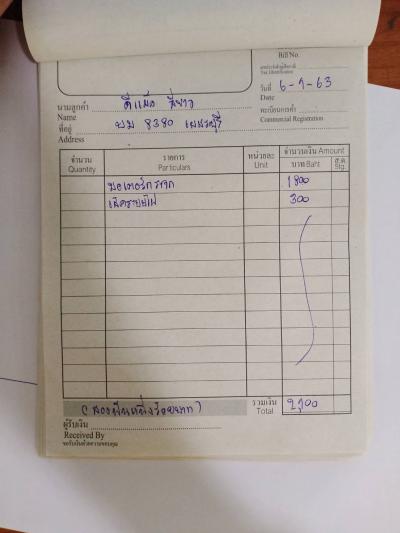 Bill No.
เลขประจำตัวผู้เสียภาษี
Tax Identification
วันที่ 6-9-63
Date
นามลูกค้า ดีแม็ก สีขาว
Name
ทะเบียนการค้า
Commercial Registration
ที่อยู่ บม 8380 เพชรบุรี
Address
จำนวน รายการ หน่วยละ จำนวนเงิน Amount
Quantity Particulars Unit บาท Baht ส.ต. Stg.
มอเตอร์กระจก 1800
300
(สองพันหนึ่งร้อยบาท) รวมเงิน 2,100
Total
ผู้รับเงิน
Received By
ขอรับเงินด้วยความขอบคุณ